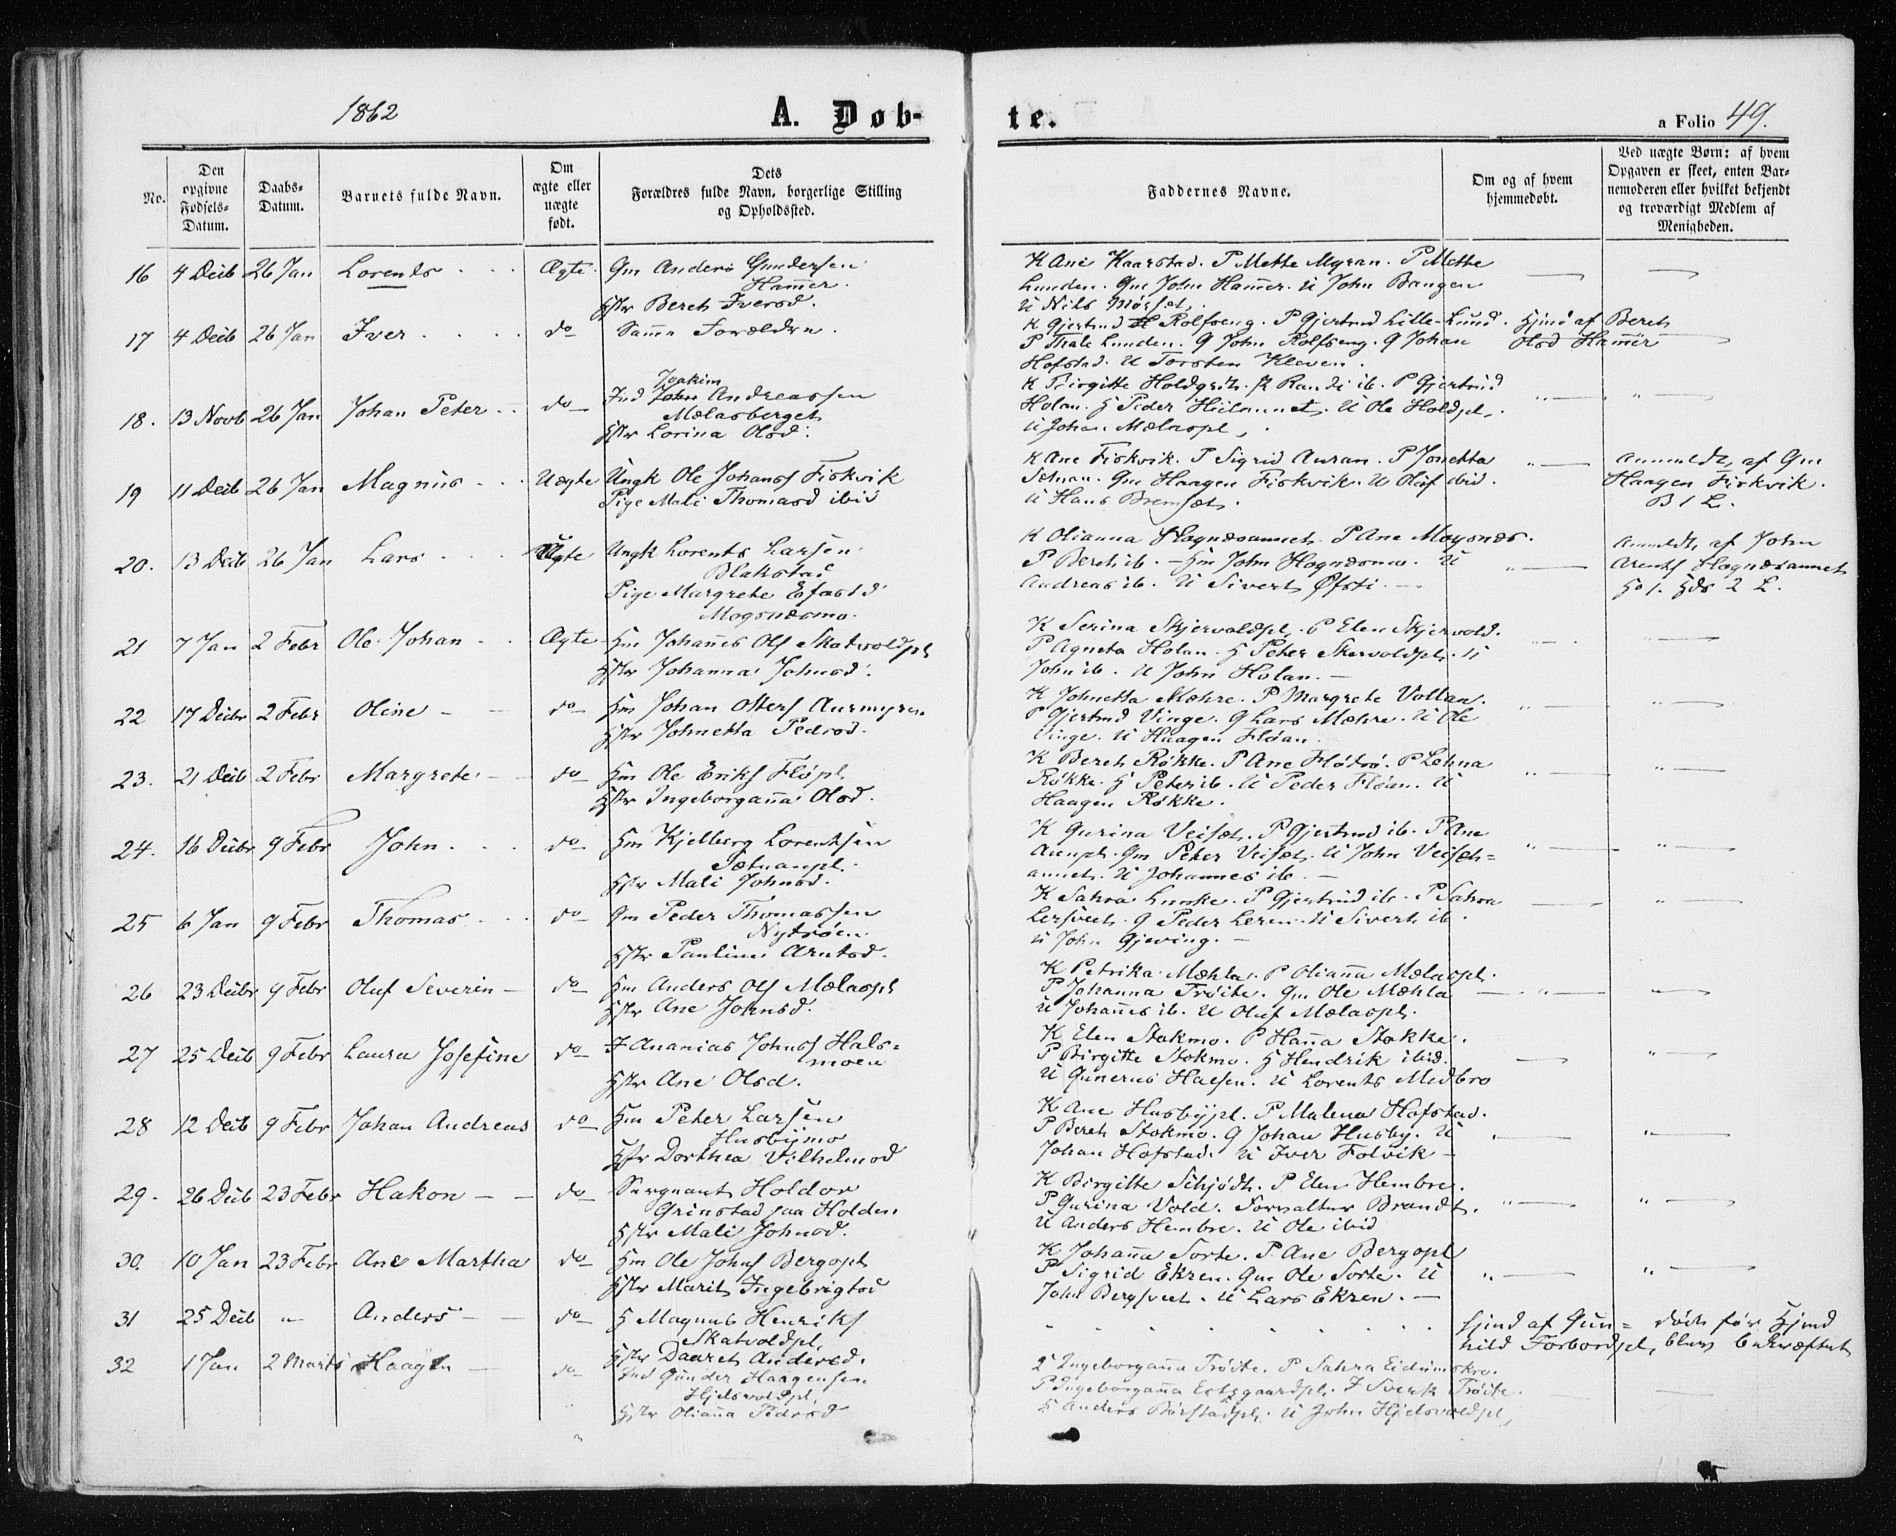 1862
A. Døb-
te.
a Folio 49.
No.
Den opgivne Fødsels-Datum.
Daabs-Datum.
Barnets fulde Navn.
Om ægte eller uægte født.
Dets Forældres fulde Navn, borgerlige Stilling og Opholdssted.
Faddernes Navne.
Om og af hvem hjemmedøbt.
Ved uægte Børn: af hvem Opgaven er skeet, enten Barnemoderen eller hvilket bekjendt og troværdigt Medlem af Menigheden.
16 4 Decb 26 Jan Lorents Ægte Gm Anders Gundersen
Hammer.
Hstr Bereth Iversd.
K Ane Kaarstad. P Mette Myran. P Mette
Lunden. Gm John Hammer. U John Bangen
U Nils Mørset.
17 4 Decb 26 Jan Iver do Samme Forældre.
K Gjertrud Rolfseng. P Gjertrud Lille-Lund. Hjmd af Bereth
P Thale Lunden. G John Rolfseng. G Johan Olsd Hammer
Hofstad. U Torsten Kleven.
18. 13 Novb 26 Jan Johan Peter do Ind Joakim Andreassen
Mælasberget
Hstr Lorina Olsd.
K Birgitte Holdgrit. K Randi ib. P Gjertrud
Holan. H Peder Hielmset. U Ole Holdpl.
U Johan Mælaspl.
19 11 Decb 26 Jan Magnus Uægte Ungk Ole Johans Fiskvik
Pige Mali Thomasd ibid
K Ane Fiskvik. P Sigrid Auran. P Jonetta
Setnan. Gm Haagen Fiskvik. U Oluf ibid.
U Hans Bremset.
Anmeldt af Gm
Haagen Fiskvik.
B 1 L.
20. 13 Decb 26 Jan Lars Uægte Ungk Lorents Larsen
Blakstad
Pige Margrete Esasd
Mogsnæsmo.
K Olianna Hognæsaunet. P Ane Mogsnæs.
P Bereth ib. Hm John Hognæsmo. U
Andreas ib. U Sivert Øfsti.
Anmeldt af John
Arents Hognæsaunet
H0 1. Hds 2 L.
21 7 Jan 2 Febr Ole Johan Ægte Hm Johannes Ols Skatvoldpl
Hstr Johanna Johnsd.
K Serina Skjervoldpl. P Elen Skjervold.
P Agneta Holan. H Peter Skervoldpl. U
John ib. U John Holan.
22 17 Decbr 2 Febr Oline do Hm Johan Otters Aurmyra
Hstr Johnetta Pedersd.
K Johnetta Mæhre. P Margrete Vollan.
P Gjertrud Vinge. G Lars Mæhre. U Ole
Vinge. U Haagen Fløan.
23. 21 Decb 2 Febr Margrete do Hm Ole Eriks Fløpl
Hstr Ingeborganna Olsd.
K Bereth Røkke. P Ane Fløtrø. P Lehna
Røkke. H Peter ib. U Peder Fløan. U
Haagen Røkke.
24. 16 Decbr 9 Febr John do Hm Kjelberg Lorentsen
Sætnanpl.
Hstr Mali Johnsd.
K Gurina Veiset. P Gjertrud ib. P Ane
Aunpl. Gm Peter Veiset. U John Veiset-
aunet. U Johannes ib.
25 6 Jan 9 Febr Thomas do Gm Peder Thomassen
Nytrøen
Hstr Pauline Arntsd.
K Sahra Lunke. P Gjertrud ib. P Sahra
Lersveet. G Peder Leren. U Sivert ib.
U John Gjeving.
26 23 Decbr 9 Febr Oluf Severin do Hm Anders Ols Mælaspl
Hstr Ane Johnsd.
K Petrika Mæhla. P Olianna Mælaspl.
P Johanna Trøite. Gm Ole Mæhla
U Johannes ib. U Oluf Mælaspl.
27 25 Decb 9 Febr Laura Josefine do I Ananias Johns Hals-
moen
Hstr Ane Olsd.
K Elen Stokmo. P Hanna Stokke.
P Birgitte Stokmo. H Hendrik ibid.
U Gunerus Halsen. U Lorents Medbro
28 12 Decb 9 Febr Johan Andreas do Hm Peter Larsen
Husbymo
Hstr Dorthea Vilhelmsd
K Ane Husbypl. P Malena Hofstad.
P Bereth Stokmo. G Johan Husby. U
Johan Hofstad. U Iver Folvik
29. 26 Decb 23 Febr Hakon do Sergeant Holdor
Grinstad paa Holden
Hstr Mali Johnsd.
K Birgitte Schjødt. P Elen Hembre.
P Gurina Vold. Forvalter Brandt.
U Anders Hembre. U Ole ibid
30. 10 Jan 23 Febr Ane Martha do Hm Ole Johns Bergspl
Hstr Marit Ingebrigtsd
K Johanna Sorte. P Ane Bergspl
P Sigrid Ekren. Gm Ole Sorte. U
John Bergsveet. U Lars Ekren.
31 25 Decb " Anders do H Magnus Henriks
Skatvoldpl,
Hstr Daaret Andersd.
Hjmd af Gun-
hild Forbordpl,
døde før Hjmd
blev bekræftet
32 1 Jan 2 Marts Haagen do Ind Gunder Haagensen
Hjelsvoldpl
Hstr Olianna Pedersd
K Ingeborganna Trøite. P Sahra Eidumskra.
P Ingeborganna Ertsgaardpl. I Svenk Trøite.
H Anders Børstadpl. U John Hjelsvoldpl,